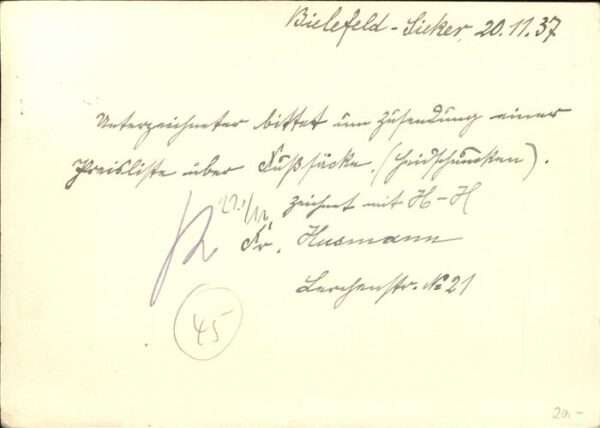 Bielefeld - Sieker, 20.11.37
Unterzeichneter bittet um Zusendung einer
Preisliste über Fußsäcke, (Heidschnucken).
zeichnet mit H-H
Fr. Husmann
Lerchenstr. № 21
45
20.-